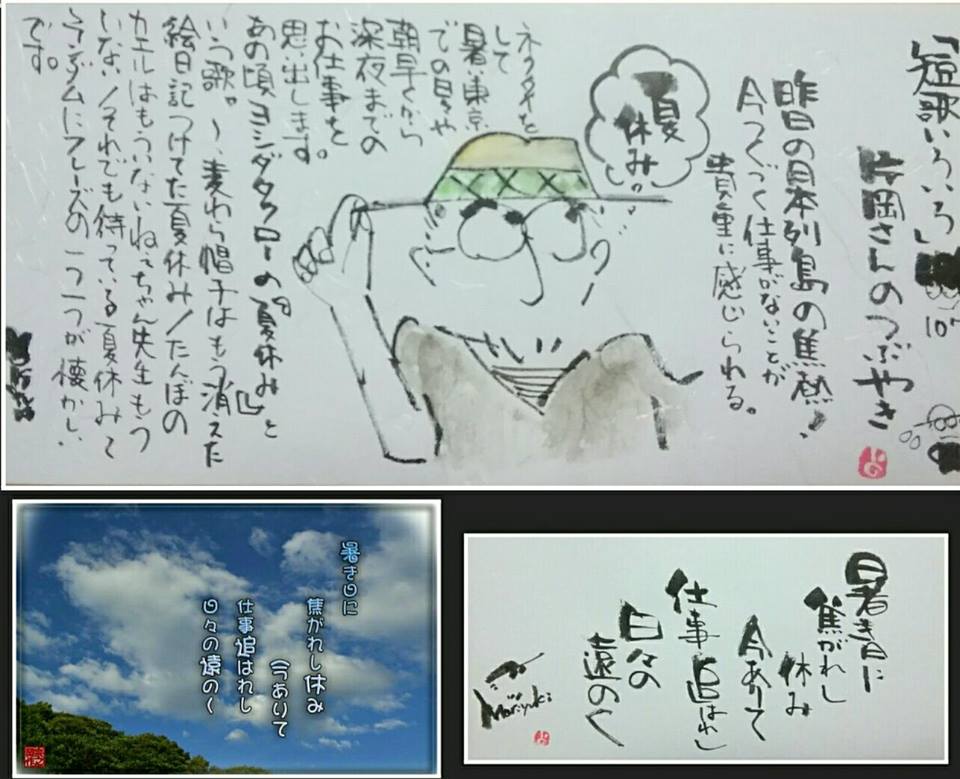 「短歌いろいろ」
片岡さんのつぶやき
昨日の日本列島の焦熱!
今つくづく仕事がないことが
貴重に感じられる。
夏
休み。
ネクタイを
して
暑い東京
での日々や
朝早くから
深夜までの
お仕事を
思い出します。
あの頃ヨシダタクローの『夏休み』と
いう歌。〜、麦わら帽子はもう消えた
絵日記つけてた夏休み/たんぼの
カエルはもういないねぇちゃん先生もう
いない/それでも待っている夏休み〜
ランダムにフレーズの一つ一つが懐かしい
です。
暑き日に
焦がれし休み
今ありて
仕事追はれし
日々の遠のく
暑き日に
焦がれし
休み
今ありて
仕事追はれし
日々の
遠のく
Moriyuki